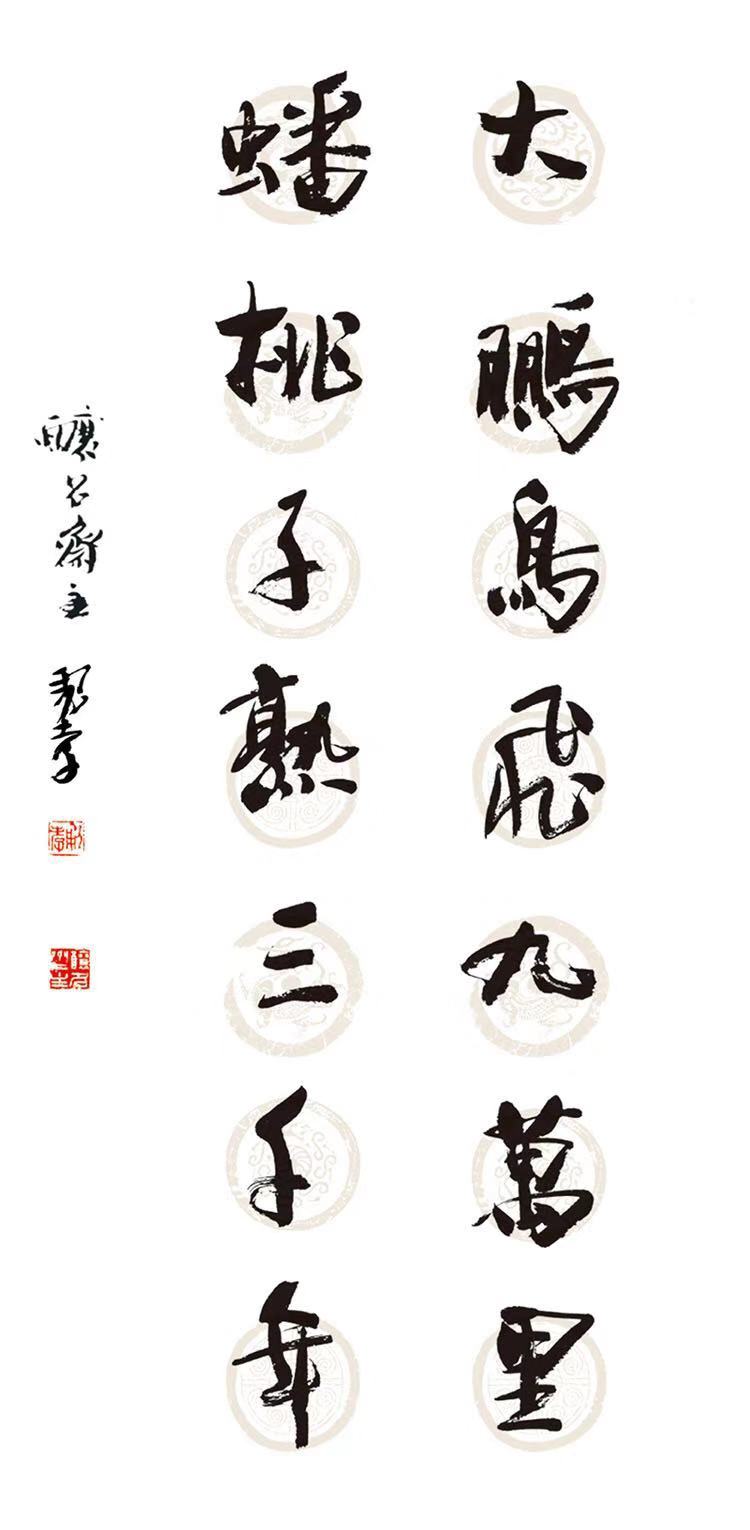 大鵬鳥飛九萬里
蟠桃子熟三千年
釀谷齋主